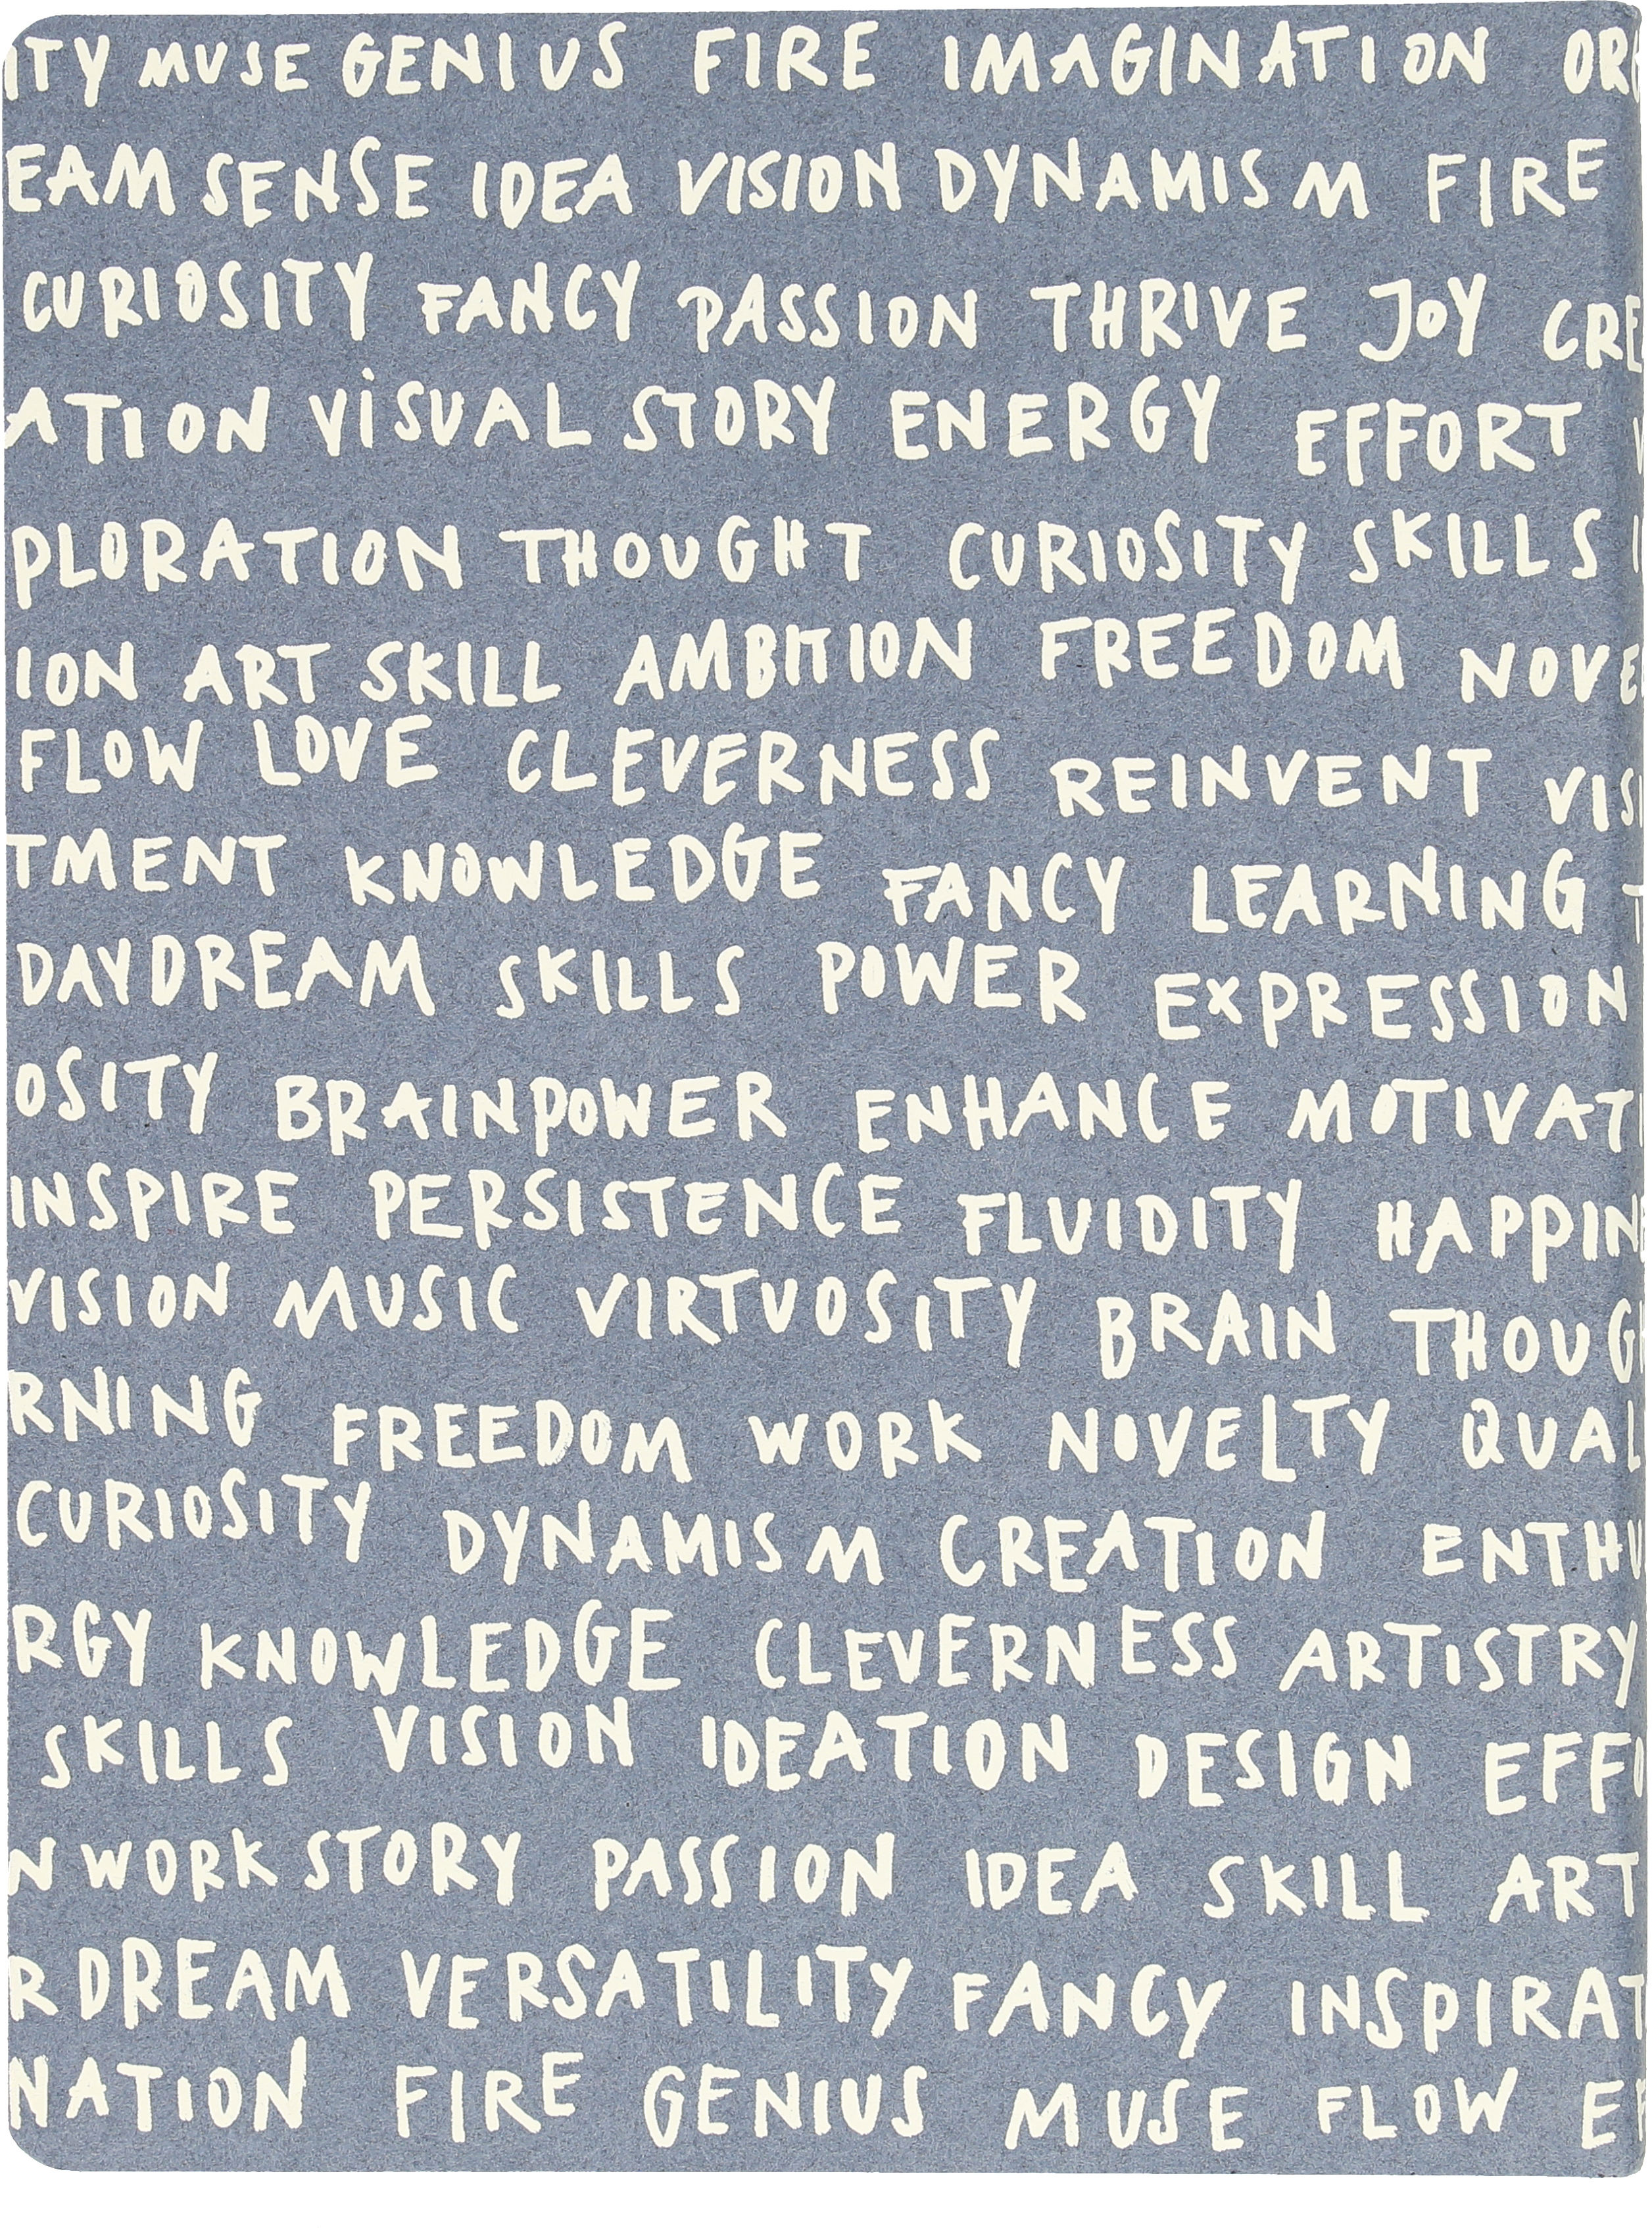 ITY MUSE GENIUS FIRE IMAGINATION OR
EAM SENSE IDEA VISION DYNAMISM FIRE
CURIOSITY FANCY PASSION THRIVE JOY CRE
ATION VISUAL STORY ENERGY EFFORT
PLORATION THOUGHT CURIOSITY SKILLS
ION ART SKILL AMBITION FREEDOM NOVE
FLOW LOVE CLEVERNESS REINVENT VIS
TMENT KNOWLEDGE FANCY LEARNING T
DAYDREAM SKILLS POWER EXPRESSION
OSITY BRAINPOWER ENHANCE MOTIVAT
INSPIRE PERSISTENCE FLUIDITY HAPPIN
VISION MUSIC VIRTUOSITY BRAIN THOUG
RNING FREEDOM WORK NOVELTY QUAL
CURIOSITY DYNAMISM CREATION ENTHU
RGY KNOWLEDGE CLEVERNESS ARTISTRY
SKILLS VISION IDEATION DESIGN EFFO
N WORK STORY PASSION IDEA SKILL ART
R DREAM VERSATILITY FANCY INSPIRAT
NATION FIRE GENIUS MUSE FLOW E